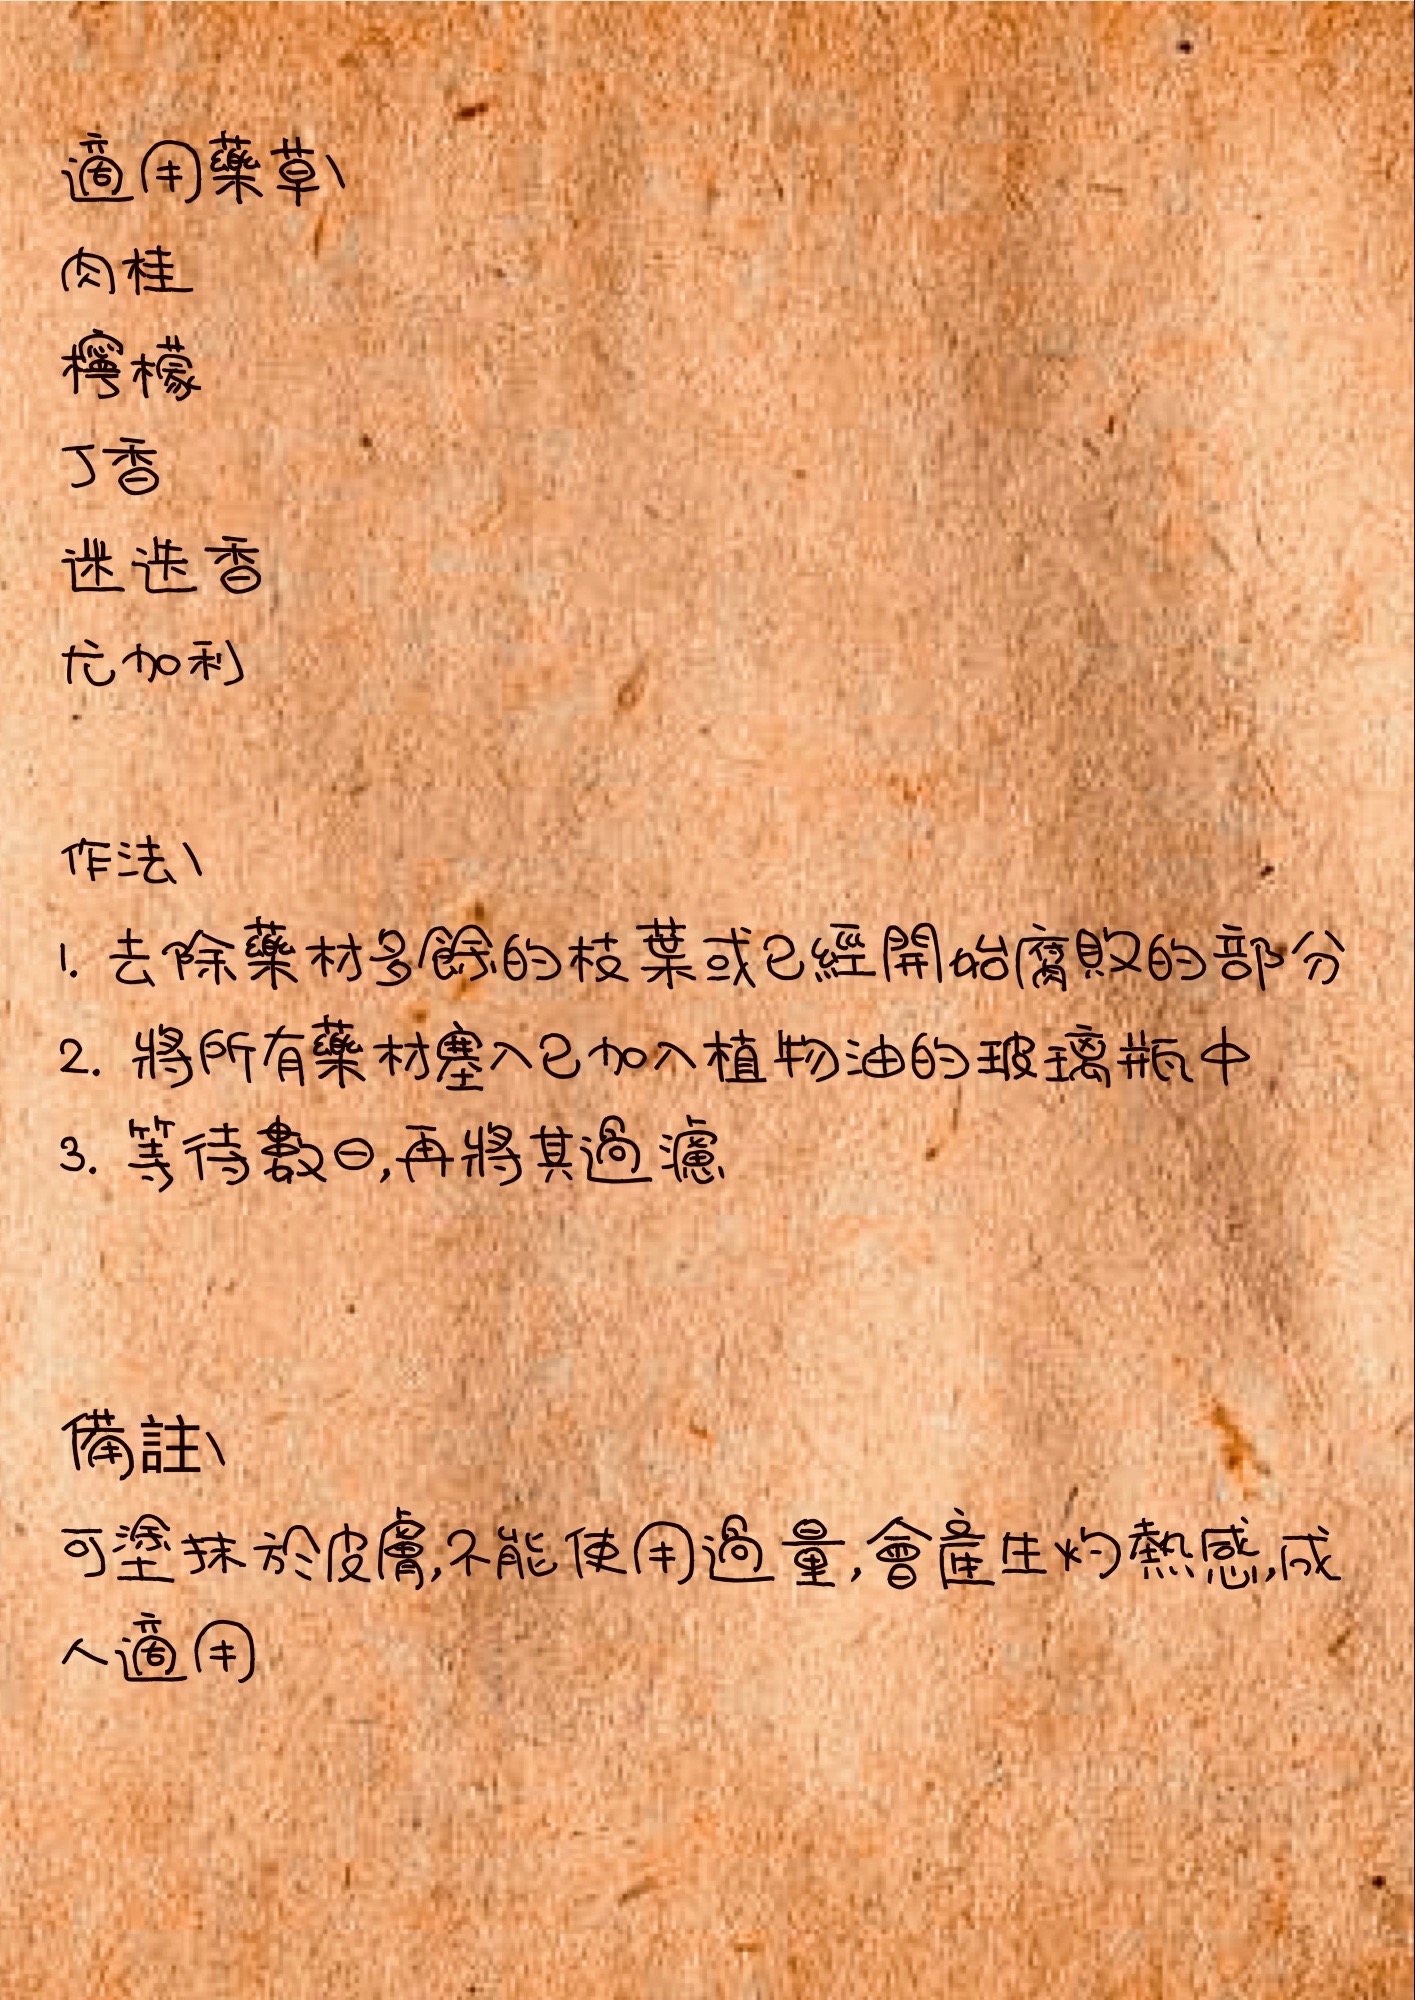 適用藥草\
肉桂
檸檬
丁香
迷迭香
尤加利
作法\
1. 去除藥材多餘的枝葉或已經開始腐敗的部分
2. 將所有藥材塞入已加入植物油的玻璃瓶中
3. 等待數日,再將其過濾
備註\
可塗抹於皮膚,不能使用過量,會產生灼熱感,成
人適用